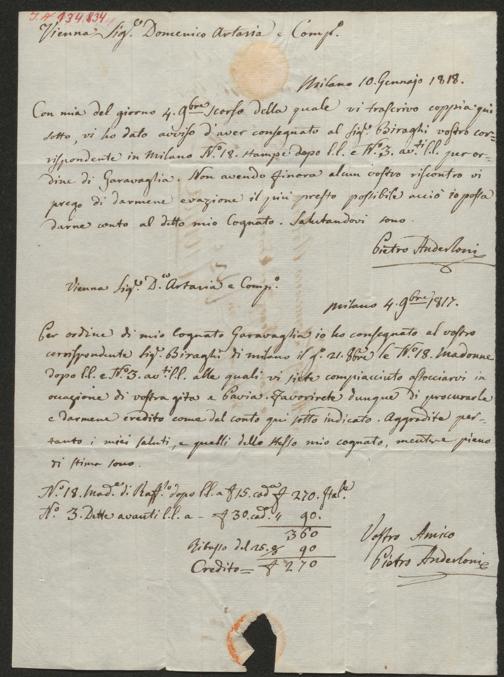 I.N. 134.834
Vienna Sig.ri Domenico Artaria e Comp.o
Milano 10. Gennajo 1818.
Con mia del giorno 4. 9bre scorso della quale vi trascrivo coppia qui
sotto, vi ho dato avviso d'aver consegnato al Sig.r Biraghi vostro cor=
rispondente in Milano N.o 18. stampe dopo l.l. e N.o 3. av.ti l.l. per or=
dine di Garavaglia. Non avendo finora alcun vostro riscontro vi
prego di darmene evazione il più presto possibile acciò io possa
darne conto al ditto mio Cognato. Salutandovi sono.
Pietro Anderloni
Vienna Sig.ri D.co Artaria e Comp.o
Milano 4. 9bre 1817.
Per ordine di mio Cognato Garavaglia io ho consegnato al vostro
corrispondente Sig.r Biraghi di Milano il g.o 21. le N.o 18. Madonne
dopo l.l. e N.o 3. av.ti l.l. alle quali vi siete compiaciuto associarvi in
occasione di vostra gita a Pavia. Favorirete dunque di procurarle
e darmene credito come dal conto qui sotto indicato. Aggradite per=
tanto i miei saluti, e quelli dello stesso mio cognato, mentre pieno
di stima sono.
N.o 18. Mad.e di Raff.lo dopo l.l. a £ 15. cad. £ 270. Ital.e
N.o 3. Dette avanti l.l. a - £ 30. cad. " 90.
360
Ribasso del 25. 90
Credito = £ 270
Vostro Amico
Pietro Anderloni